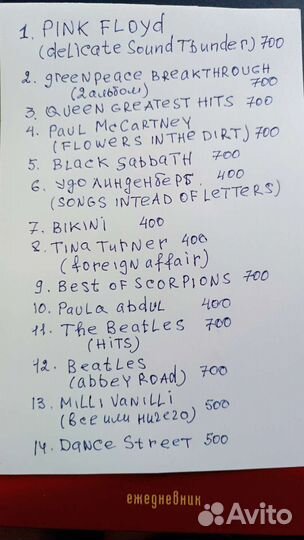 1. PINK FLOYD
(delicate Sound Thunder) 700
2. greenpeace BREAKTHROUGH
(2 альбом) 700
3. QUEEN GREATEST HITS 700
4. PAUL McCARTNEY
(FLOWERS IN THE DIRT) 700
5. BLACK SABBATH 700
6. УДО ЛИНДЕНБЕРГ. 400
(SONGS INTEAD OF LETTERS)
7. BIKINI 400
8. TINA TURNER 400
(foreign affair)
9. BEST OF SCORPIONS 700
10. Paula abdul 400
11. The Beatles 700
(HITS)
12. Beatles
(abbey ROAD) 700
13. Milli VANILLI
(все или ничего) 500
14. Dance Street 500
ежедневник
Avito